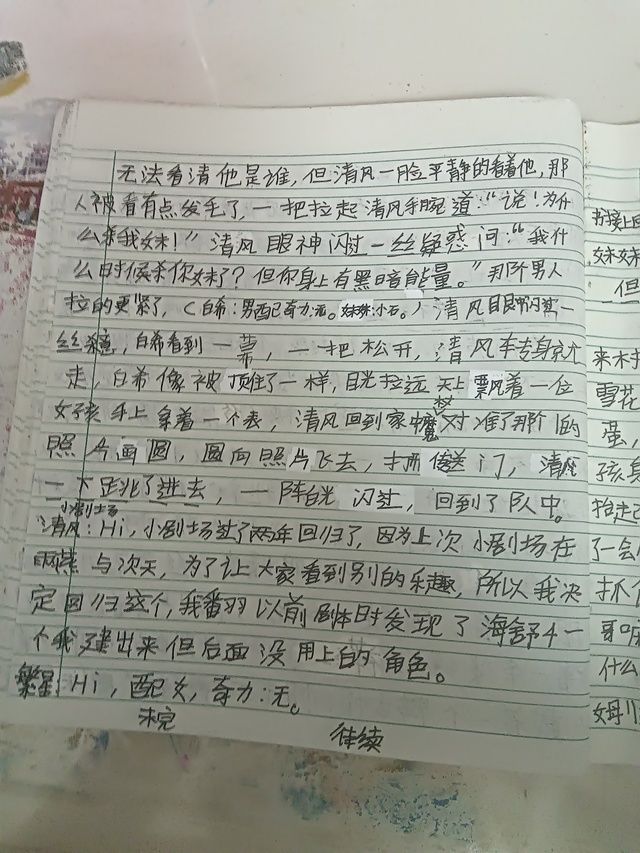 无法看清他是谁，但清风一脸平静的看着他，那
人被看有点发毛了，一把拉起清风手腕道：“说！为什
么杀我妹！”清风眼神闪过一丝疑惑问：“我什
么时候杀你妹了？但你身上有黑暗能量。”那个男人
拉的更紧了，（白希：男配奇力：无。妹妹：小石。）清风眼眼中闪过一
丝杀意，白希看到一幕，一把松开，清风车专身就
走，白希像被顶住了一样，目光拉远天上飘着一位
女孩手上拿着一个表，清风回到家中魔梦对准了那个的
照片画圆，圆向照片飞去，打所传送门，清风
一下足兆了进去，一阵白光闪过，回到了队中。
小剧场
清风：Hi，小剧场过了两年回归了，因为上次小剧场在
与次天，为了让大家看到别的乐趣，所以我决
定回归这个，我番羽以前剧本时发现了海舒4一
个我建出来但后面没用上的角色。
繁星：Hi，配女，奇力：无。
未完
待续
书接上回
妹妹
但
来木
雪花
萤，
孩身
抢走
了一会
才不
哥
什么
姆